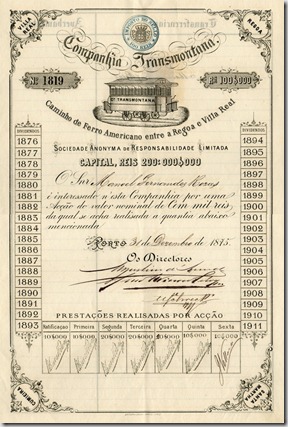 REGOA
Companhia Transmontana.
Nº 1819
Rs 100$000
Cª TRANSMONTANA
Caminho de Ferro Americano entre a Regoa e Villa Real
SOCIEDADE ANONYMA DE RESPONSABILIDADE LIMITADA
CAPITAL, REIS 200:000$000
O Snr Manoel Fernandes
é interessado n'esta Companhia por uma
Acção do valor nominal de Cem mil reis,
da qual se acha realisada a quantia abaixo
mencionada
PORTO 31 de Dezembro de 1875
Os Directores
DIVIDENDOS
1876
1877
1878
1879
1880
1881
1882
1883
1884
1885
1886
1887
1888
1889
1890
1891
1892
1893
DIVIDENDOS
1894
1895
1896
1897
1898
1899
1900
1901
1902
1903
1904
1905
1906
1907
1908
1909
1910
1911
PRESTAÇÕES REALISADAS POR ACÇÃO
Ratificação Primeira Segunda Terceira Quarta Quinta Sexta
10$000
CUMIEIRA
SANTA MARTHA